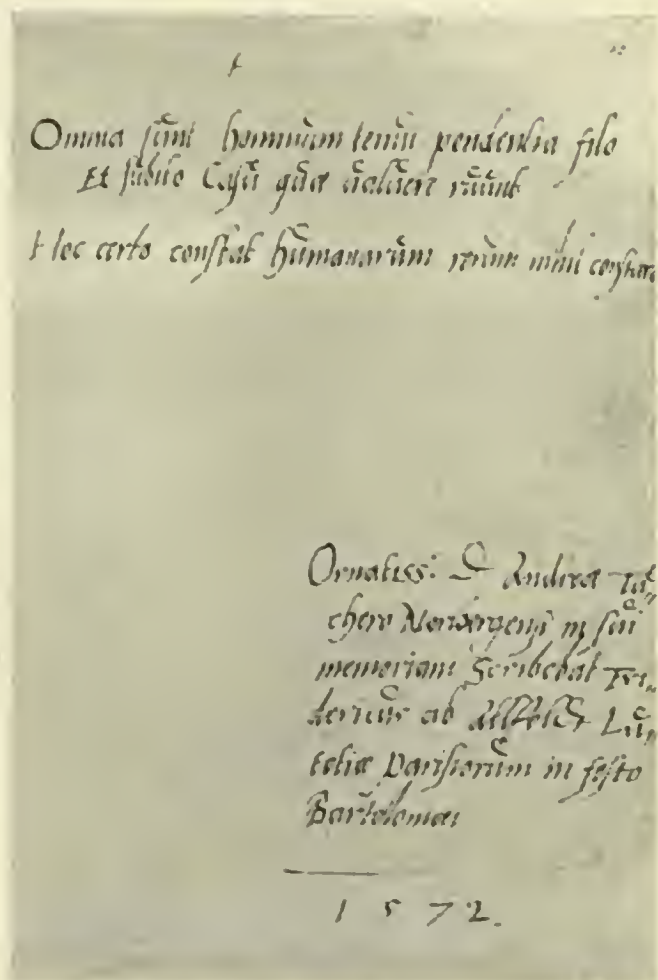 Omnia sunt hominum tenui pendentia filo
Et subito Casu quæ valuere ruunt
Hoc certo constat humanarum rerum nihil constare
Ornatiss: D Andreæ Tu„
chero Norbergensi in sui
memoriam Scribebat Fri„
dericus ab Lu„
tetiæ Parisiorum in festo
Bartolomæi
1572.